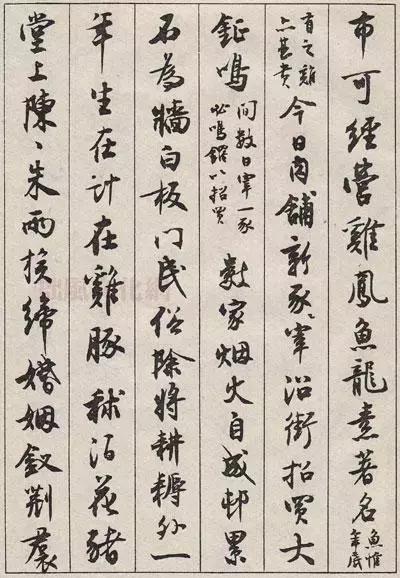 布可經營雞鳳魚龍素著名魚惟年底
有之雞甚貴今日肉舖新豕宰沿街招買大
鉦鳴間數日宰一豕必鳴鑼以招買數家烟火自成邨累
石為牆白板门民俗除將耕耨外一
年生在計在雞豚秫酒花豬
堂上陳、朱两族締婚姻釵荆裠